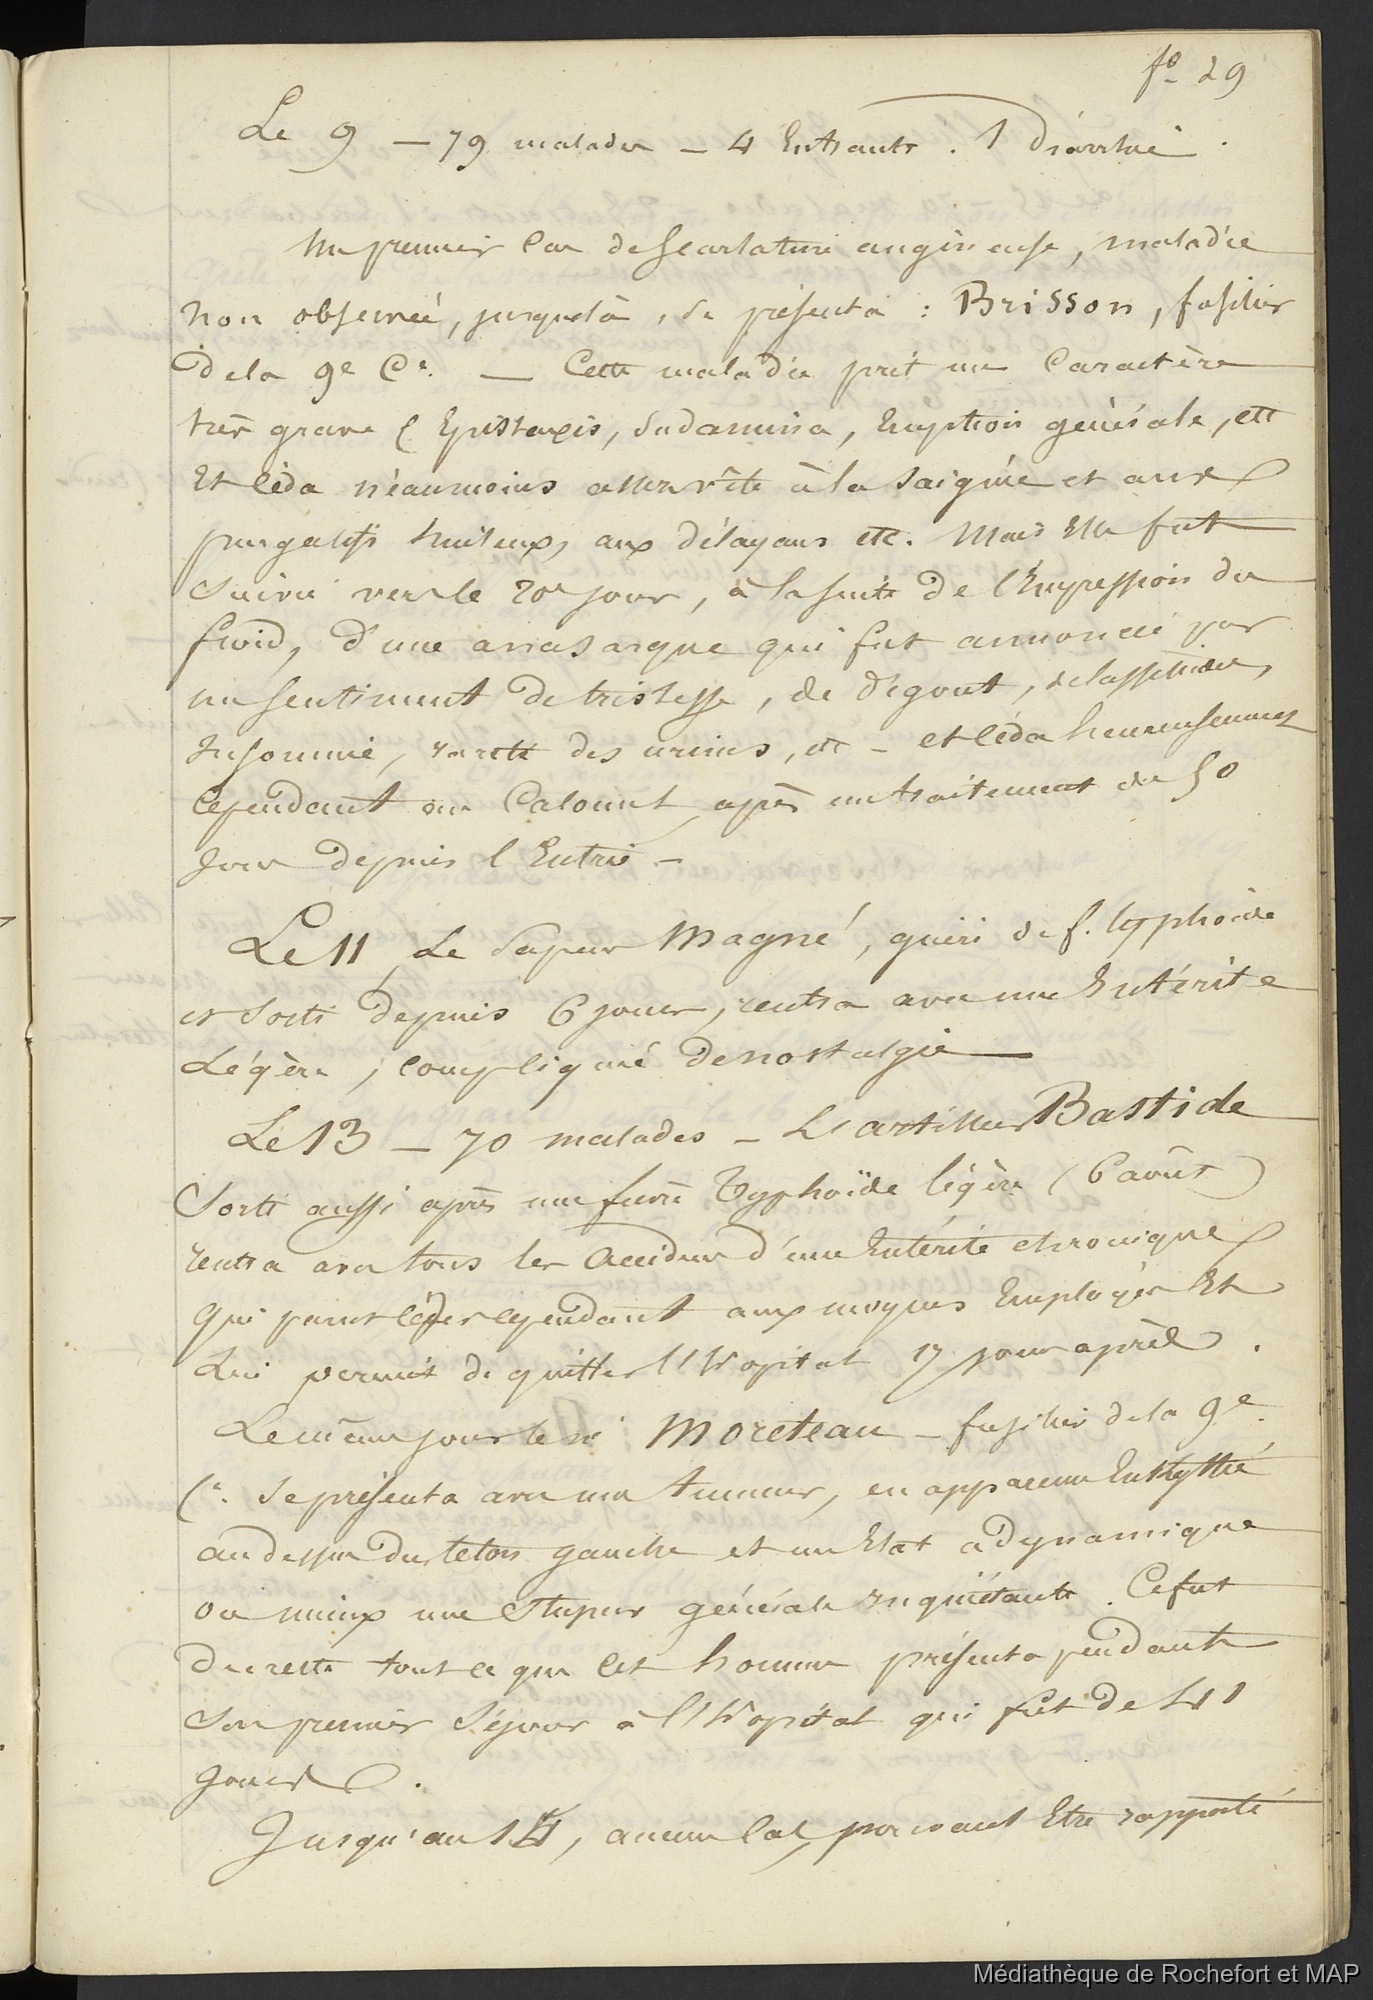 fo 29
Le 9 — 79 malades — 4 Entrants . 1 Diarrhée .
Un premier Cas de Scarlatine angineuse, maladie
non observée, jusque là, se présenta : Brisson, fusilier
de la 9e Cie. — Cette maladie prit un Caractère
très grave (Epistaxis, Sudamina, Eruption générale, etc
Et céda néanmoins assez vîte à la Saignée et aux
purgatifs huileux, aux délayans etc. Mais Elle fut
Suivie vers le 20e jour, à la suite de l'Impression du
froid, d'une anasarque qui fut annoncée par
un sentiment de tristesse, de dégout, de lassitudes,
Insomnie, rareté des urines, etc — et céda heureusement
Cependant au Calomel, après un traitement de 50
jours depuis l'Entrée —
Le 11 Le Sapeur Magné, guéri de f. typhoïde
et Sorti depuis 6 jours, rentra avec une Entérite
Légère, compliquée de nostalgie —
Le 13 — 70 malades — L'artilleur Bastide
Sorti aussi après une fièvre Typhoïde légère (6 août)
rentra avec tous les accidens d'une Entérite chronique
qui parut céder cependant aux moyens Employés Et
Lui permit de quitter l'Hopital 17 jours après .
Le même jour le né Moreteau — fusilier de la 9e
Cie. Se présenta avec une tumeur, en apparence Enkystée
au dessus du teton gauche et un Etat adynamique
ou mieux une Stupeur générale inquiétante. Ce fut
du reste tout ce que cet homme présenta pendant
Son premier Séjour à l'Hopital qui fut de 41
jours .
Jusqu'au 14, aucun Cas, pouvant Etre rapporté
Médiathèque de Rochefort et MAP